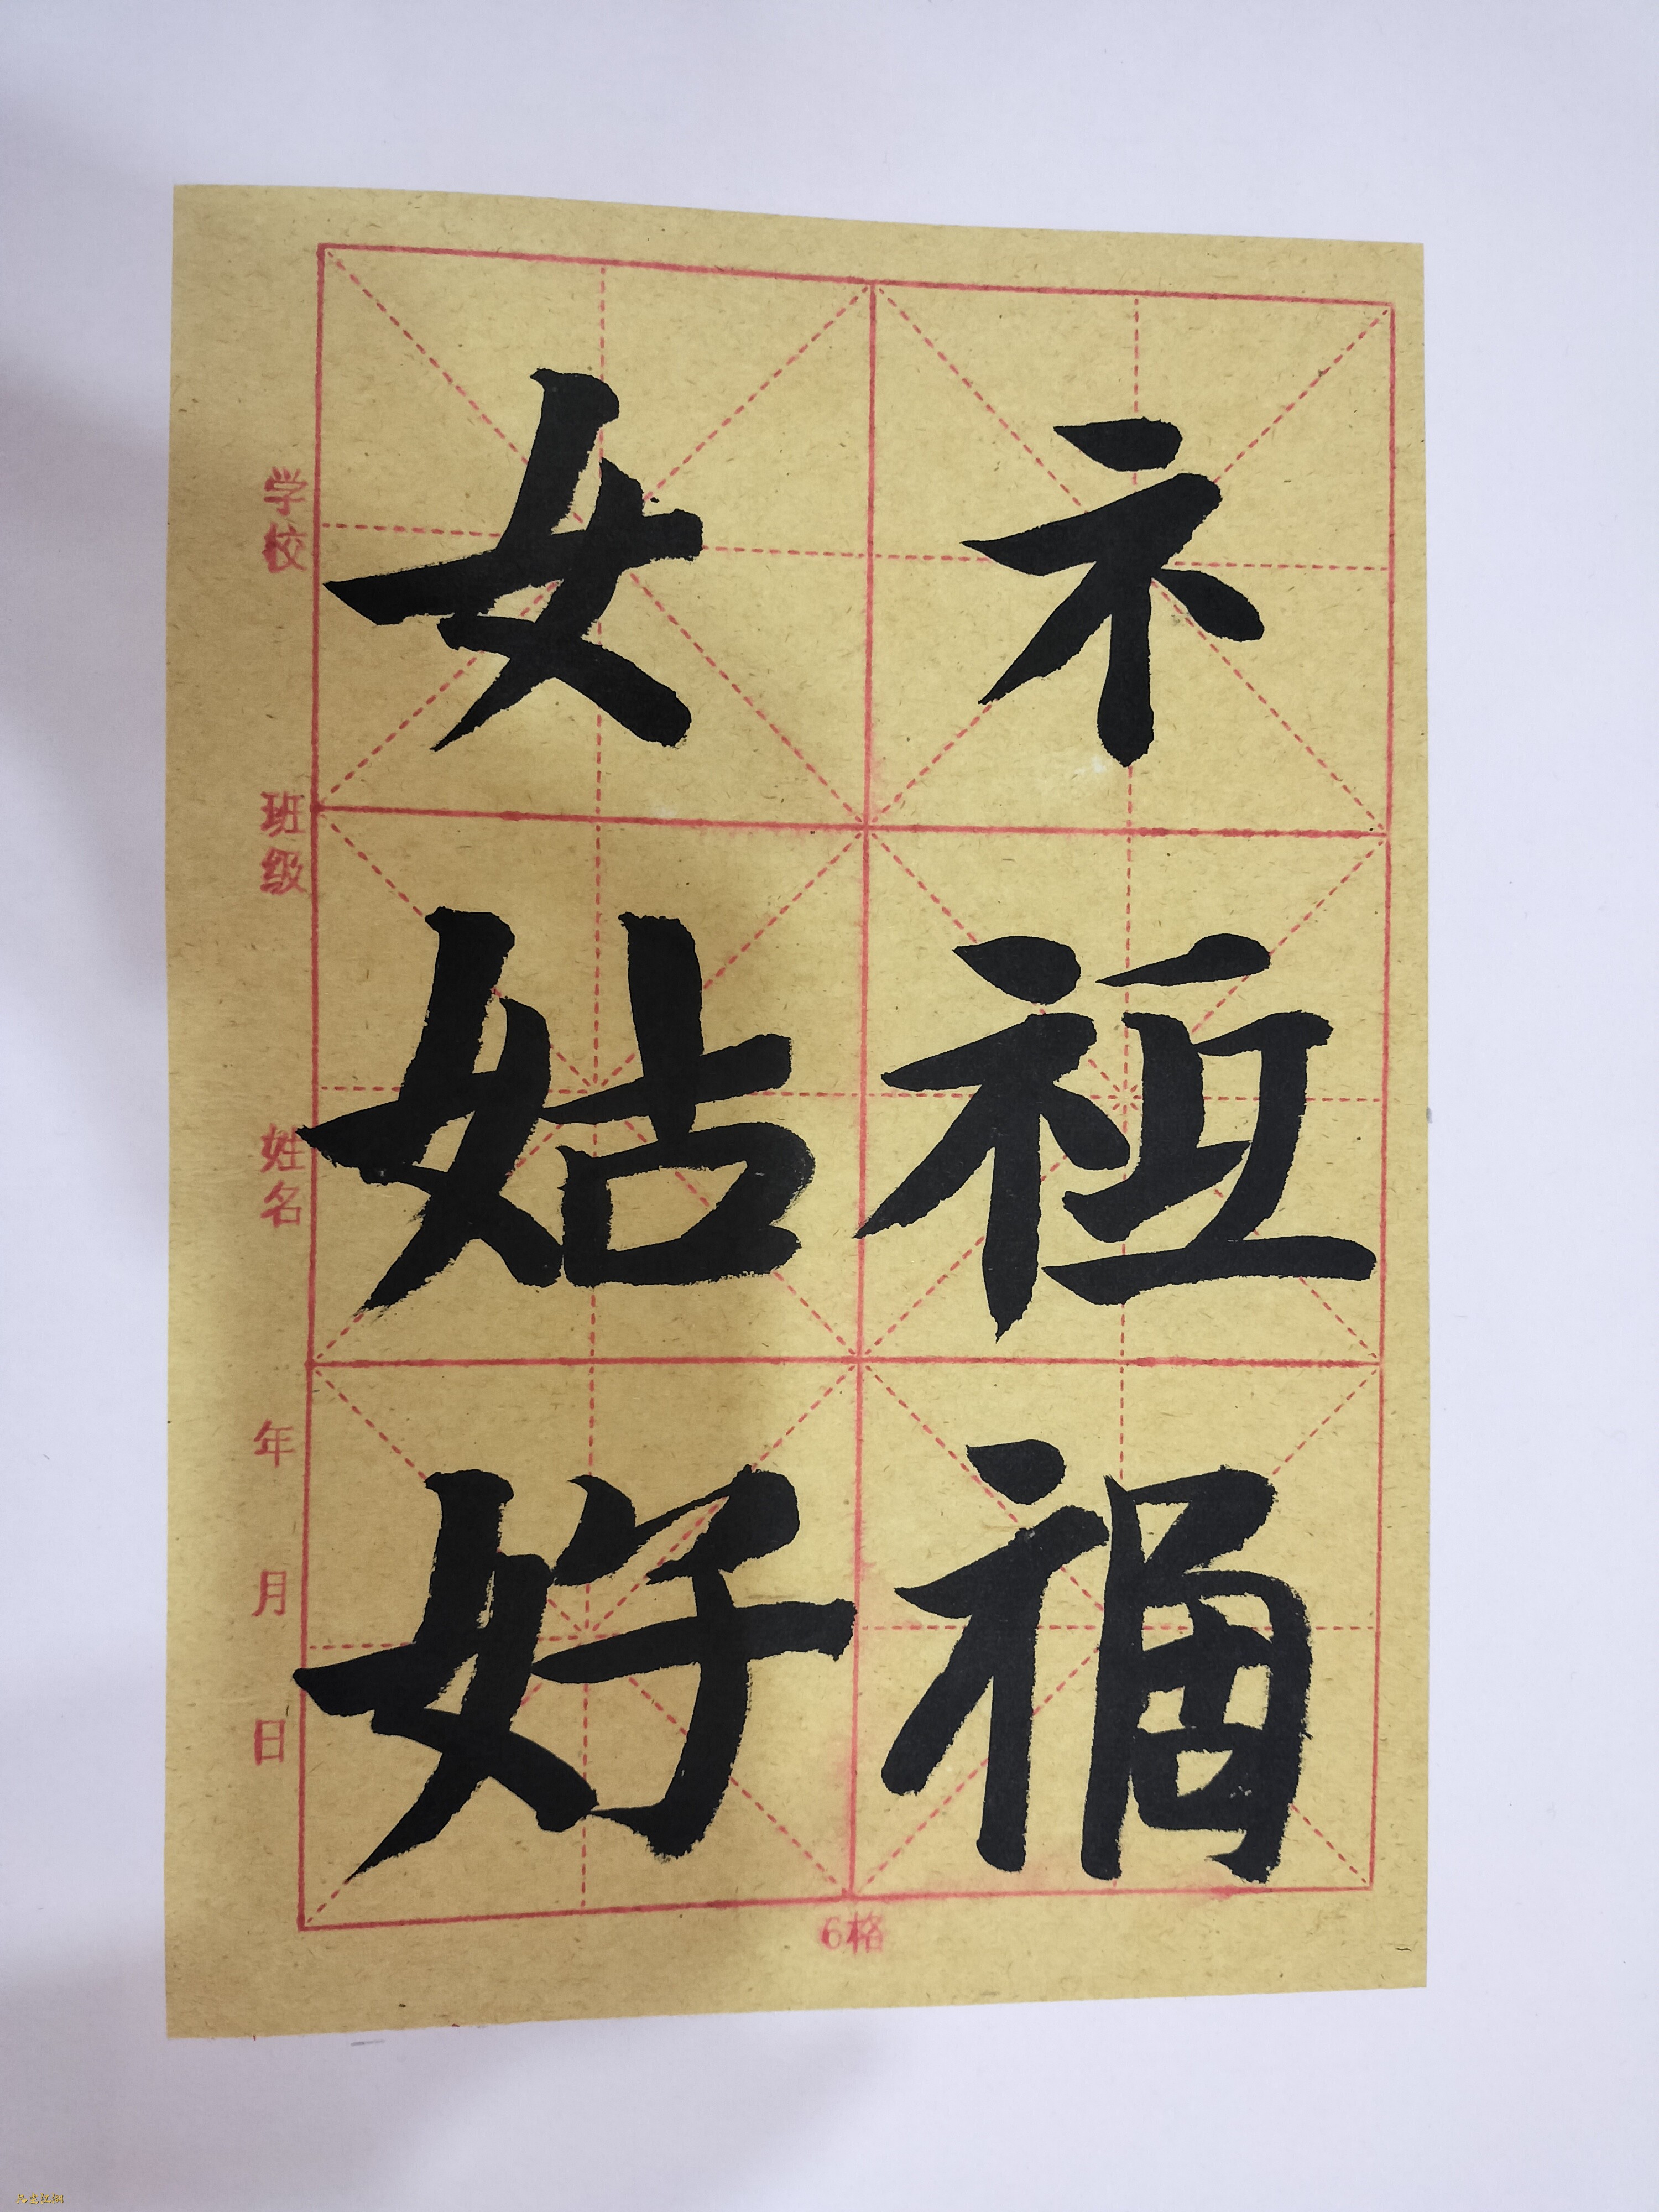 礻祖禍
女姑好
学校 班级 姓名 年 月 日
6格